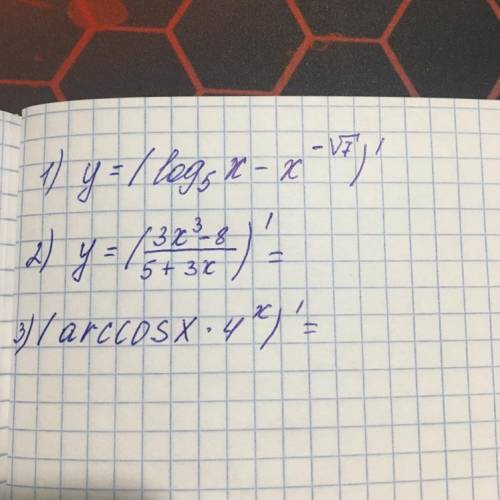 1) y = (log₅x − x^(−√7))'
2) y = ((3x³−8)/(5+3x))' =
3) (arccosx · 4^x)' =